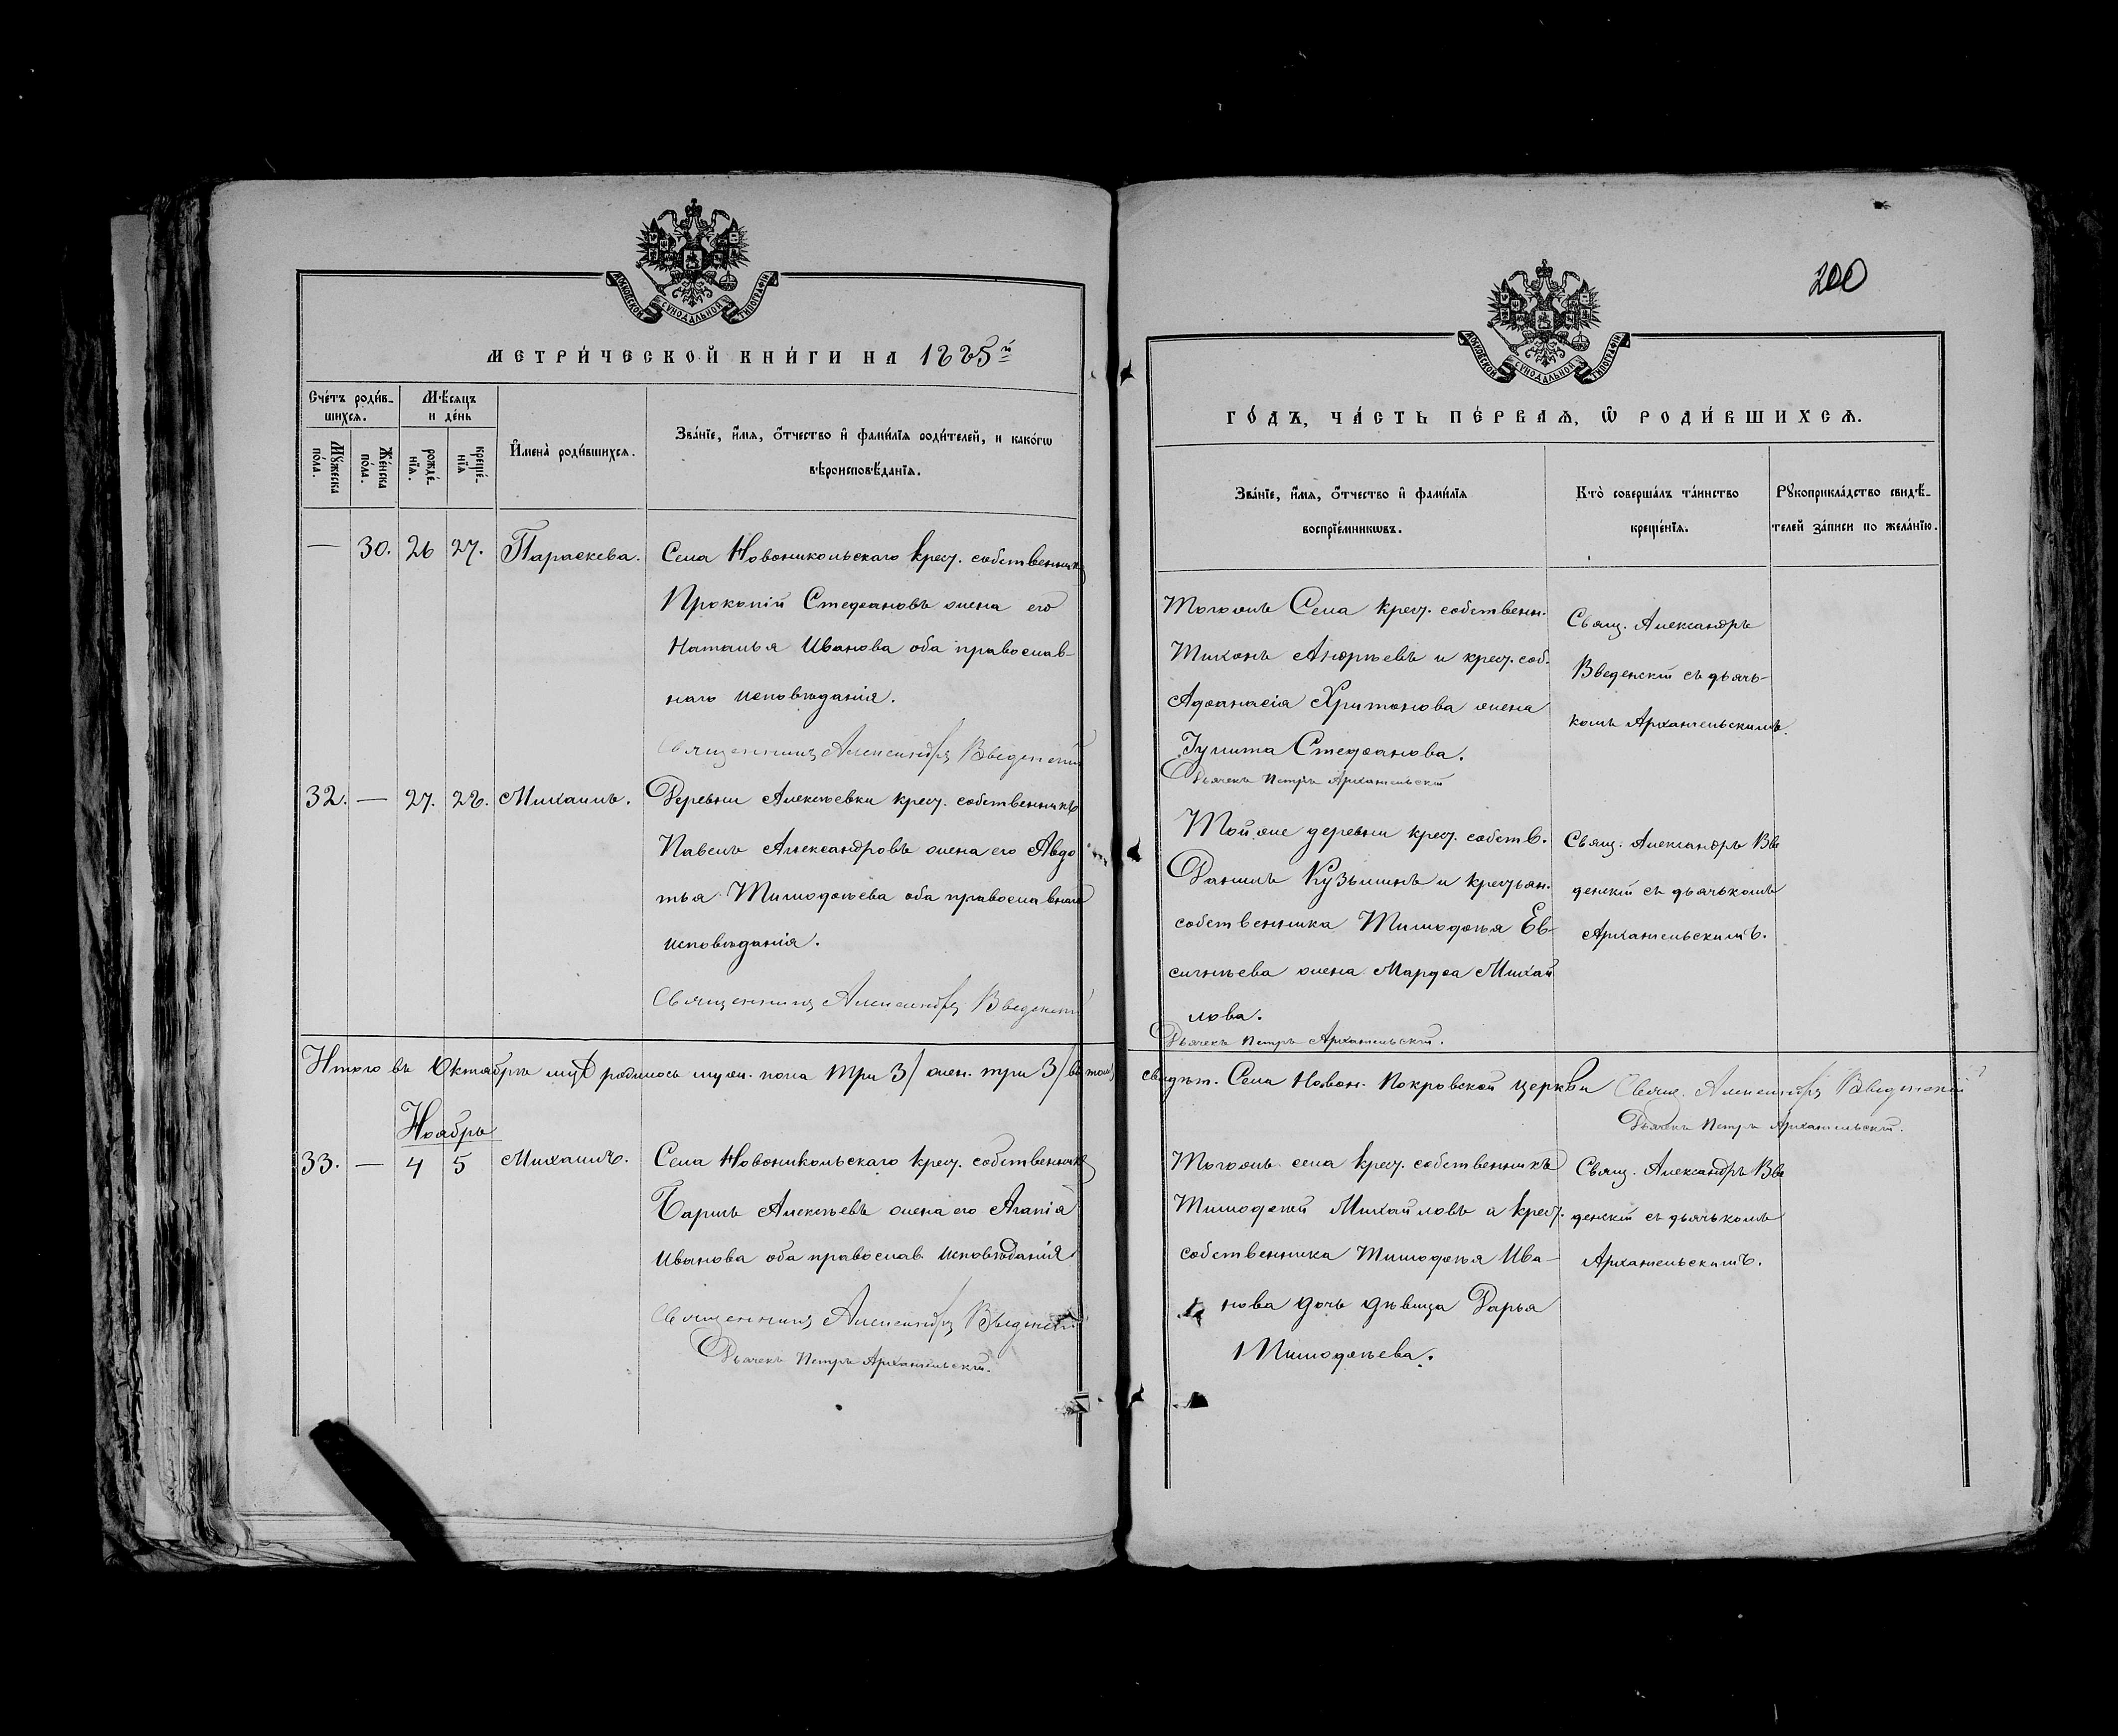 МОСКОВСКОЙ СУНОДАЛЬНОЙ ТИПОГРАФІИ
МЕТРИ́ЧЕСКОЙ КНИ́ГИ НА 1885й
Сче́тъ роди́в-
шихсѧ.
Мѣ́сяцъ
и де́нь
Мꙋ́жеска по́ла.
Же́нска по́ла.
рожде́-нїѧ.
креще́-нїѧ
И҆мена̀ роди́вшихсѧ.
Зва́нїе, и҆́мѧ, ѻ҆́тчество и҆ фами́лїѧ роди́телей, и како́гѡ
вѣроисповѣ́данїѧ.
— 30. 26 27. Параскева.
Села Новоникольскаго крест. собственникъ
Прокопій Стефановъ жена его
Наталья Иванова оба православ-
наго исповѣданія.
Священникъ Александръ Введенскій
32. — 27. 28. Михаилъ.
Деревни Алексѣевки крест. собственникъ
Павелъ Александровъ жена его Авдо
тья Тимофѣева оба православнаго
исповѣданія.
Священникъ Александръ Введенскій
Итого въ Октябрѣ родилось муж. пола три 3/ жен. три 3/ въ томъ
Ноябрь
33. — 4 5 Михаилъ.
Села Новоникольскаго крест. собственникъ
Алексѣевъ жена его Агапія
Иванова оба православ. исповѣданія
Священникъ Александръ Введенскій
Дьячекъ Петръ Архангельскій.
200
МОСКОВСКОЙ СУНОДАЛЬНОЙ ТИПОГРАФІИ
ГО́ДЪ, ЧА́СТЬ ПЕ́РВАѦ, Ѡ҆ РОДИ́ВШИХСѦ.
Зва́нїе, и҆́мѧ, ѻ҆́тчество и҆ фами́лїѧ
воспрїе́мникѡвъ.
Кто̀ соверша́лъ та́инство
креще́нїѧ.
Рꙋкоприкла́дство свидѣ́-
телей за́писи по жела́нїю.
Тогожъ Села крест. собственн.
Тихонъ Андрѣевъ и крест. соб.
Афанасія Хритонова жена
Іулита Стефанова.
Дьячекъ Петръ Архангельскій
Свящ. Александръ
Введенскій съ дьячь-
комъ Архангельскимъ.
Той же деревни крест. собств.
Данилъ Кузьминъ и крестьян.
собственника Тимофѣя Ев-
сигнѣева жена Марфа Михай
лова.
Дьячекъ Петръ Архангельскій.
Свящ. Александръ Вве
денскій съ дьячькомъ
Архангельскимъ.
свидѣт. Села Новон. Покровской церкви Свящ. Александръ Введенскій
Дьячекъ Петръ Архангельскій.
Тогожъ села крест. собственникъ
Тимофей Михайловъ и крест.
собственника Тимофѣя Ива-
нова дочь дѣвица Дарья
Тимофѣева.
Свящ. Александръ Вве
денскій съ дьячькомъ
Архангельскимъ.